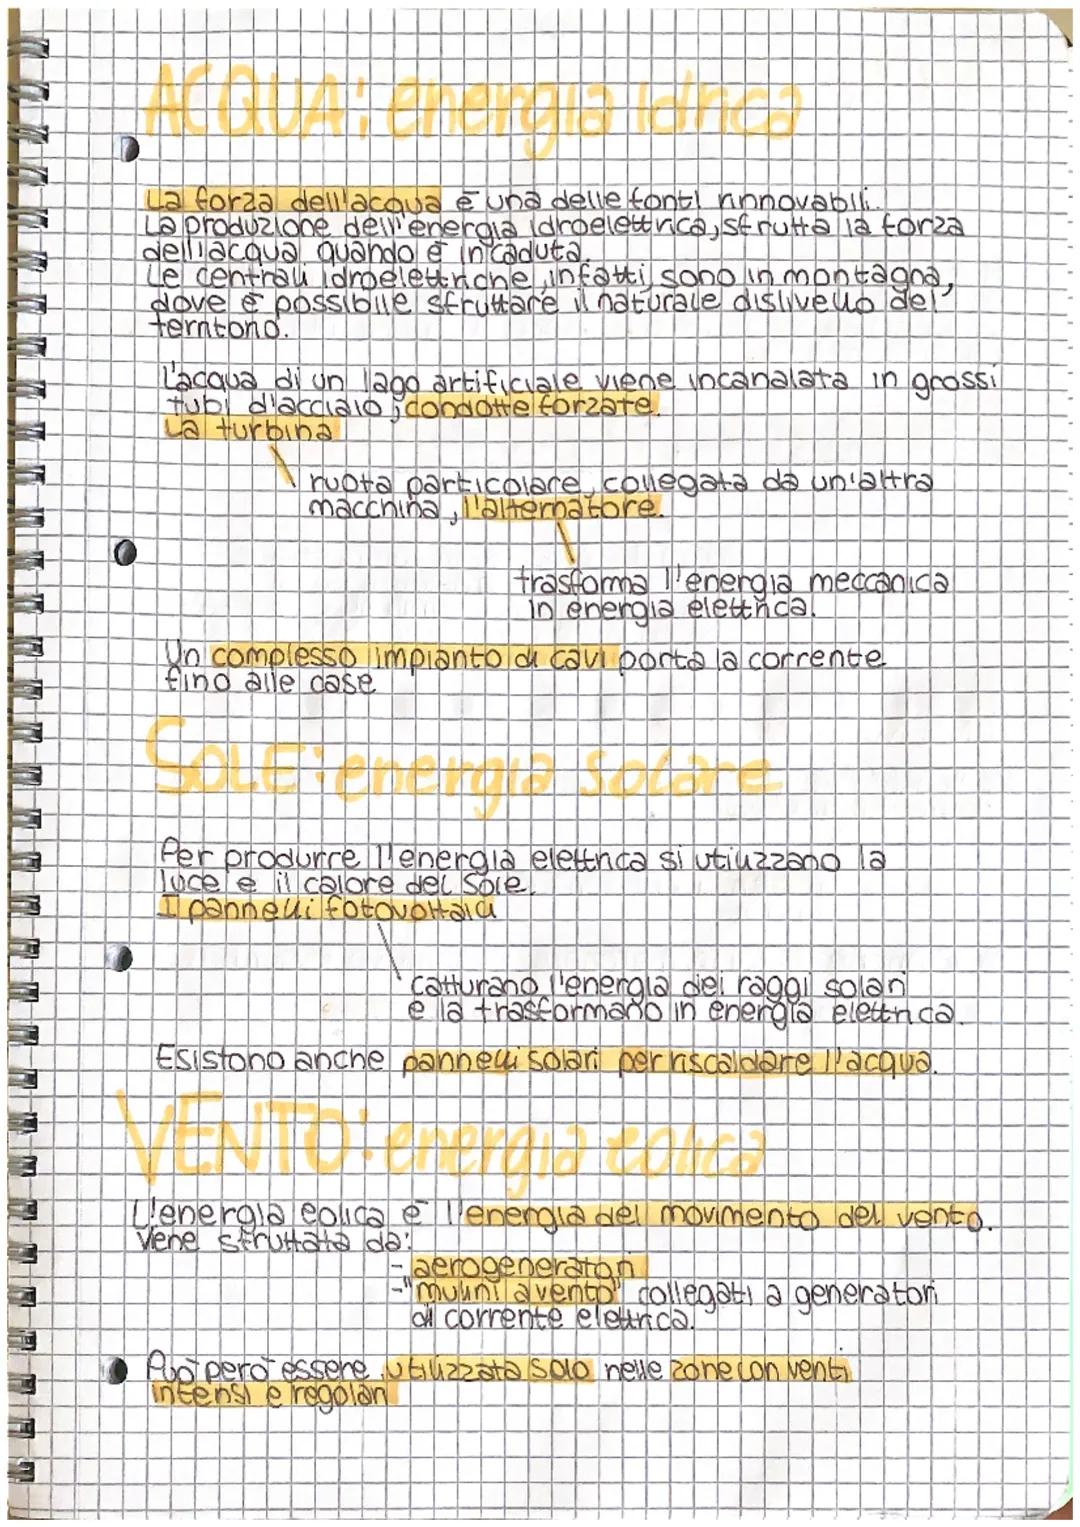 ACQUA: energia idrica
La forza dell'acqua è una delle fonti rinnovabili.
La produzione dell'energia idroelettrica, sfrutta la forza
dell'acqua quando è in caduta.
Le centrali idroelettriche, infatti, sono in montagna,
dove è possibile sfruttare il naturale dislivello del
territorio.
L'acqua di un lago artificiale viene incanalata in grossi
tubi d'acciaio, condotte forzate.
La turbina
ruota particolare, collegata da un'altra
macchina, l'alternatore.
trasforma l'energia meccanica
in energia elettrica.
Un complesso impianto di cavi porta la corrente
fino alle case
SOLE: energia solare
Per produrre l'energia elettrica si utilizzano la
luce e il calore del Sole.
I pannelli fotovoltaici
catturano l'energia dei raggi solari
e la trasformano in energia elettrica.
Esistono anche pannelli solari per riscaldare l'acqua.
VENTO: energia eolica
L'energia eolica è l'energia del movimento del vento.
Viene sfruttata da:
- aerogeneratori
- "mulini a vento" collegati a generatori
di corrente elettrica.
Può però essere utilizzata solo nelle zone con venti
intensi e regolari